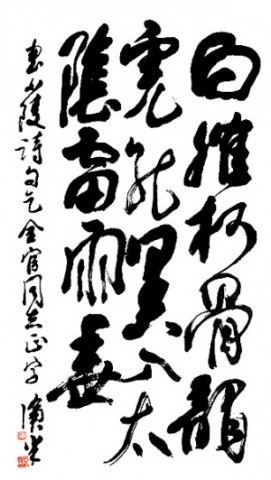 白摧朽骨龍
虎死黑入太
陰雷雨垂
書少陵詩句乞金官同志正字